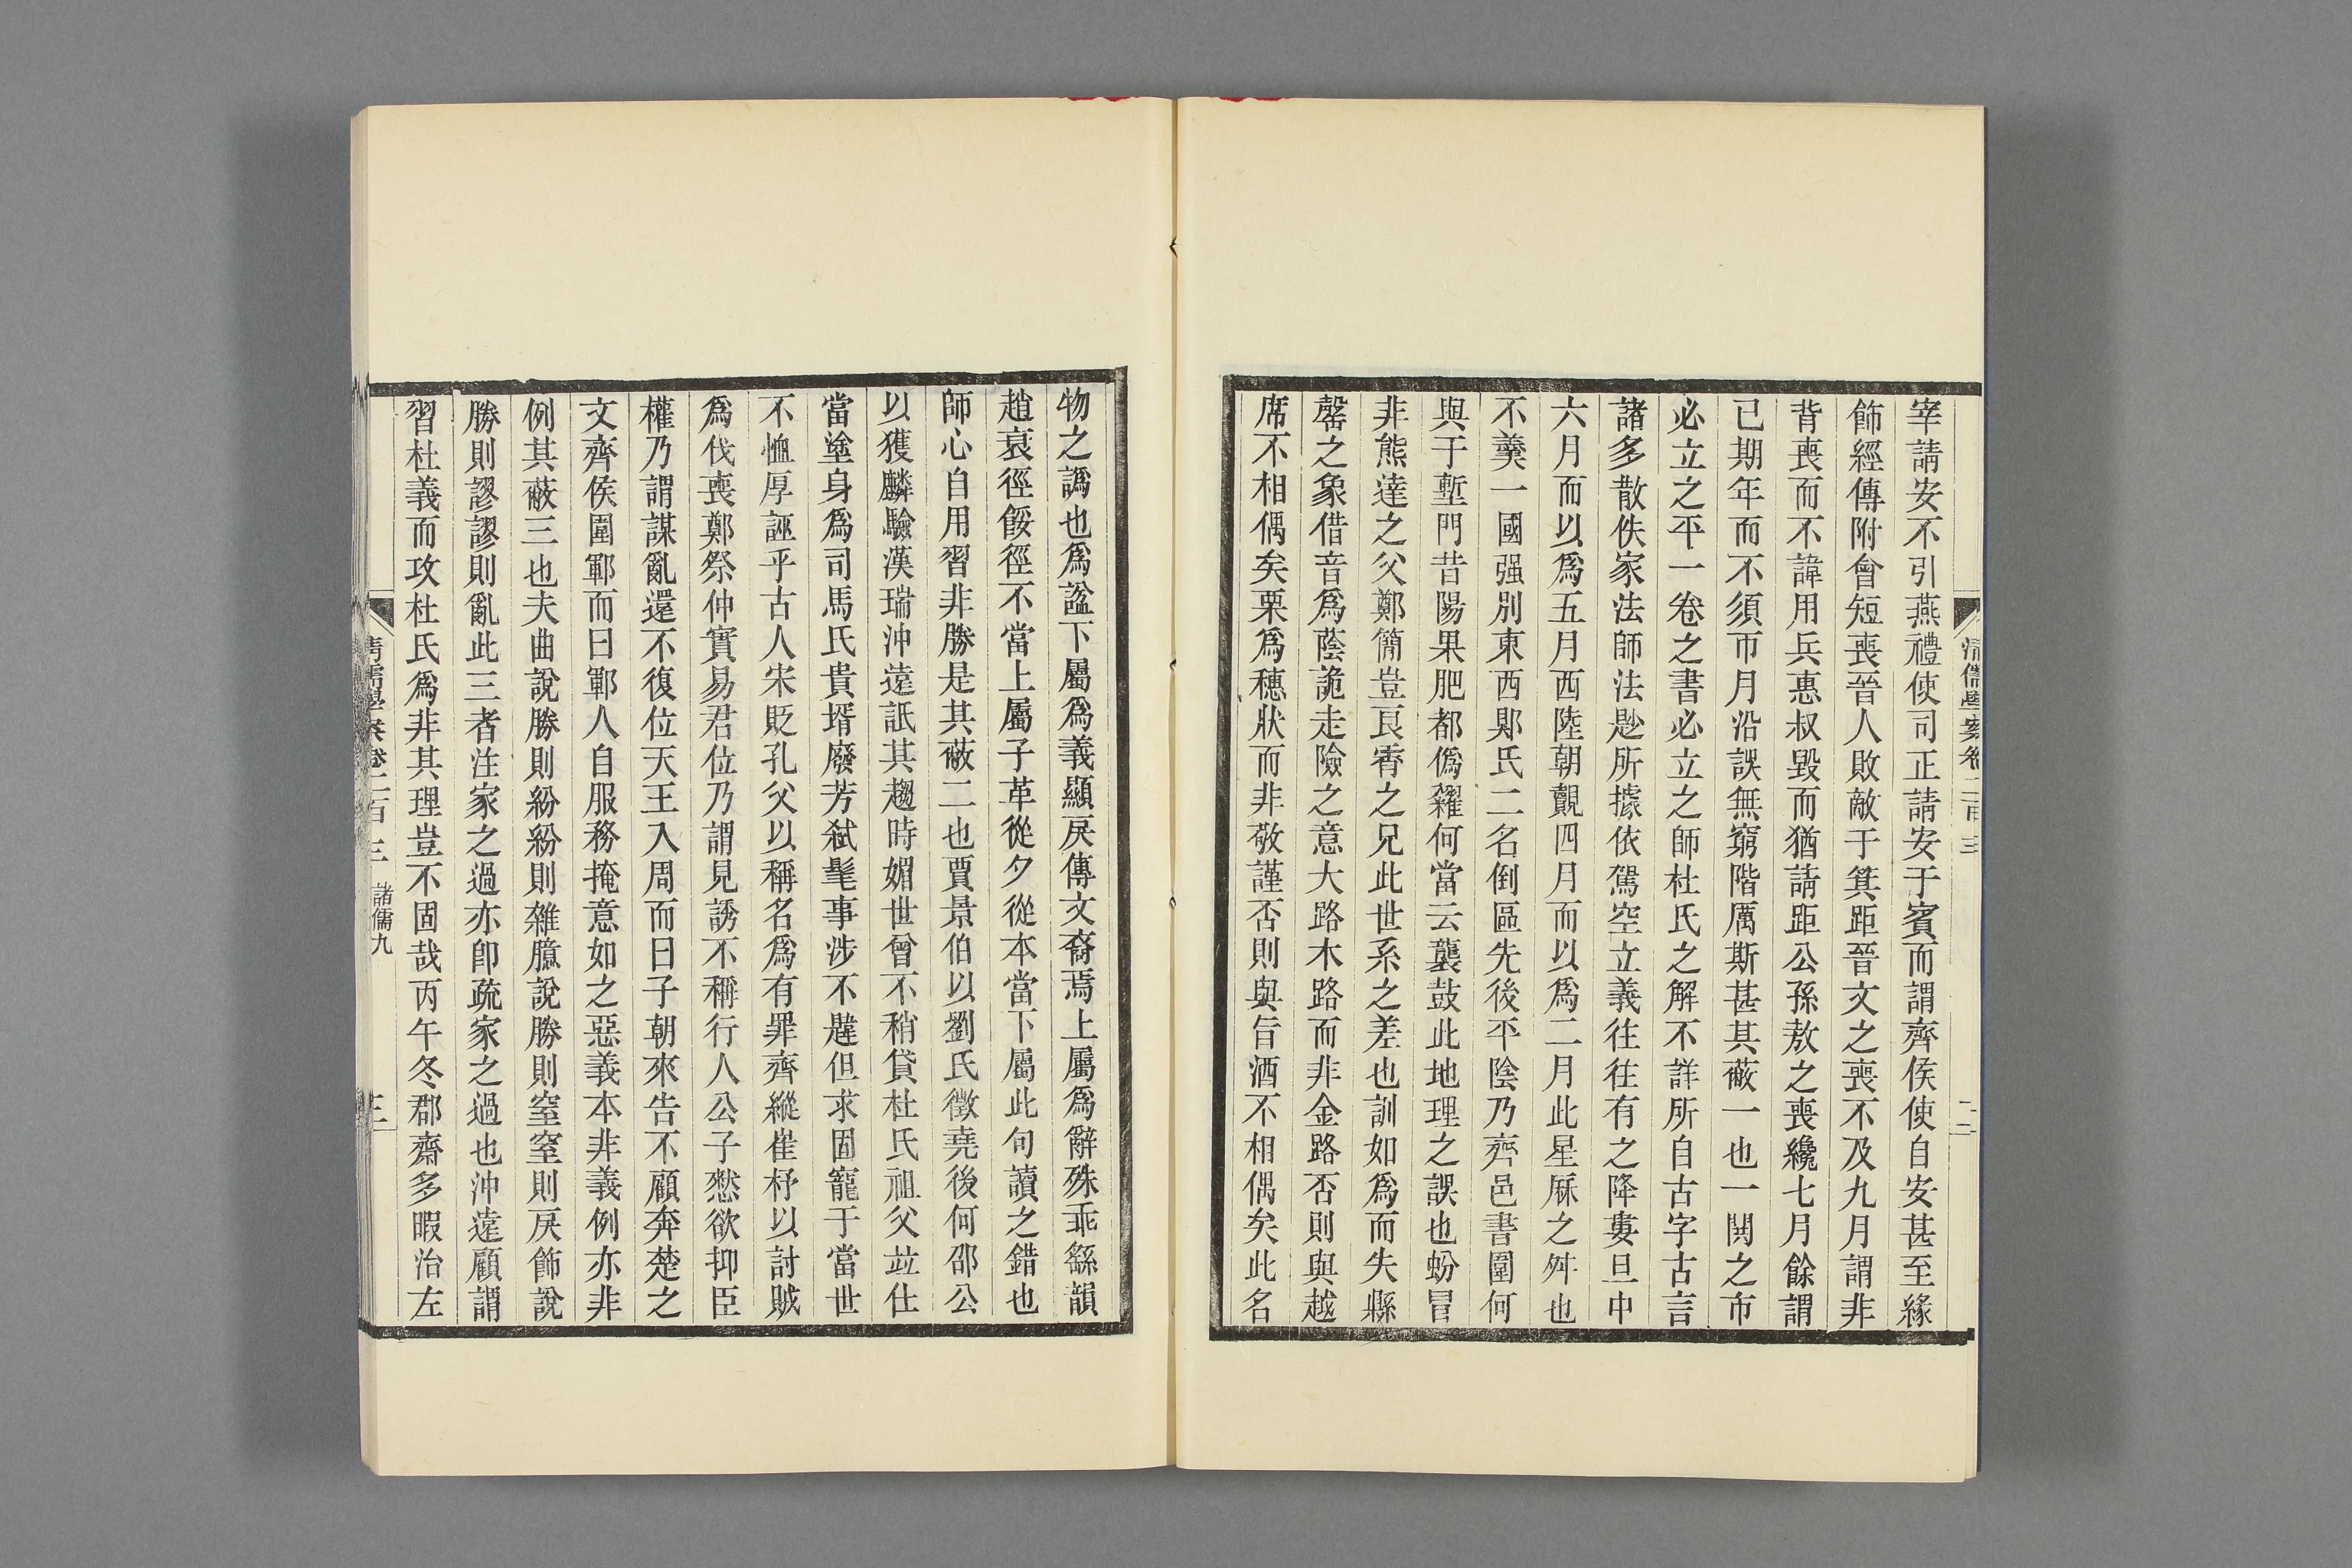 宰請安不引燕禮使司正請安于賓而謂齊侯使自安甚至緣
飾經傳附會短喪晉人敗敵于箕距晉文之喪不及九月謂非
背喪而不諱用兵惠叔毀而猶請距公孫敖之喪纔七月餘謂
已期年而不須帀月沿誤無窮階厲斯甚其蔽一也一鬨之市
必立之平一卷之書必立之師杜氏之解不詳所自古字古言
諸多散佚家法師法尟所據依駕空立義往往有之降婁旦中
六月而以爲五月西陸朝覿四月而以爲二月此星厤之舛也
不羹一國强別東西鄍氏二名倒區先後平陰乃齊邑書圍何
與于塹門昔陽果肥都僞糴何當云襲鼓此地理之誤也蚡冒
非熊達之父鄭簡豈良霄之兄此世系之差也訓如爲而失縣
罄之象借音爲蔭詭走險之意大路木路而非金路否則與越
席不相偶矣栗爲穗狀而非敬謹否則與旨酒不相偶矣此名
清儒學案卷二百三
二二
物之譌也爲諡下屬爲義顯戾傳文裔焉上屬爲辭殊乖繇韻
趙衰徑餒徑不當上屬子革從夕從本當下屬此句讀之錯也
師心自用習非勝是其蔽二也賈景伯以劉氏徵堯後何邵公
以獲麟驗漢瑞沖遠詆其趨時媚世曾不稍貸杜氏祖父竝仕
當塗身爲司馬氏貴壻廢芳弑髦事涉不韙但求固寵于當世
不恤厚誣乎古人宋貶孔父以稱名爲有罪齊縱崔杼以討賊
爲伐喪鄭祭仲實易君位乃謂見誘不稱行人公子憖欲抑臣
權乃謂謀亂還不復位天王入周而曰子朝來告不顧奔楚之
文齊侯圍鄆而曰鄆人自服務掩意如之惡義本非義例亦非
例其蔽三也夫曲說勝則紛紛則雜臆說勝則窒窒則戾飾說
勝則謬謬則亂此三者注家之過亦卽疏家之過也沖遠顧謂
習杜義而攻杜氏爲非其理豈不固哉丙午冬郡齋多暇治左
清儒學案卷二百三 諸儒九